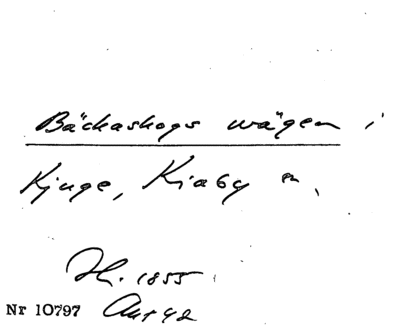 Bäckaskogs vägen i
Kjuge, Kiaby sn.
1855
Nr 10797